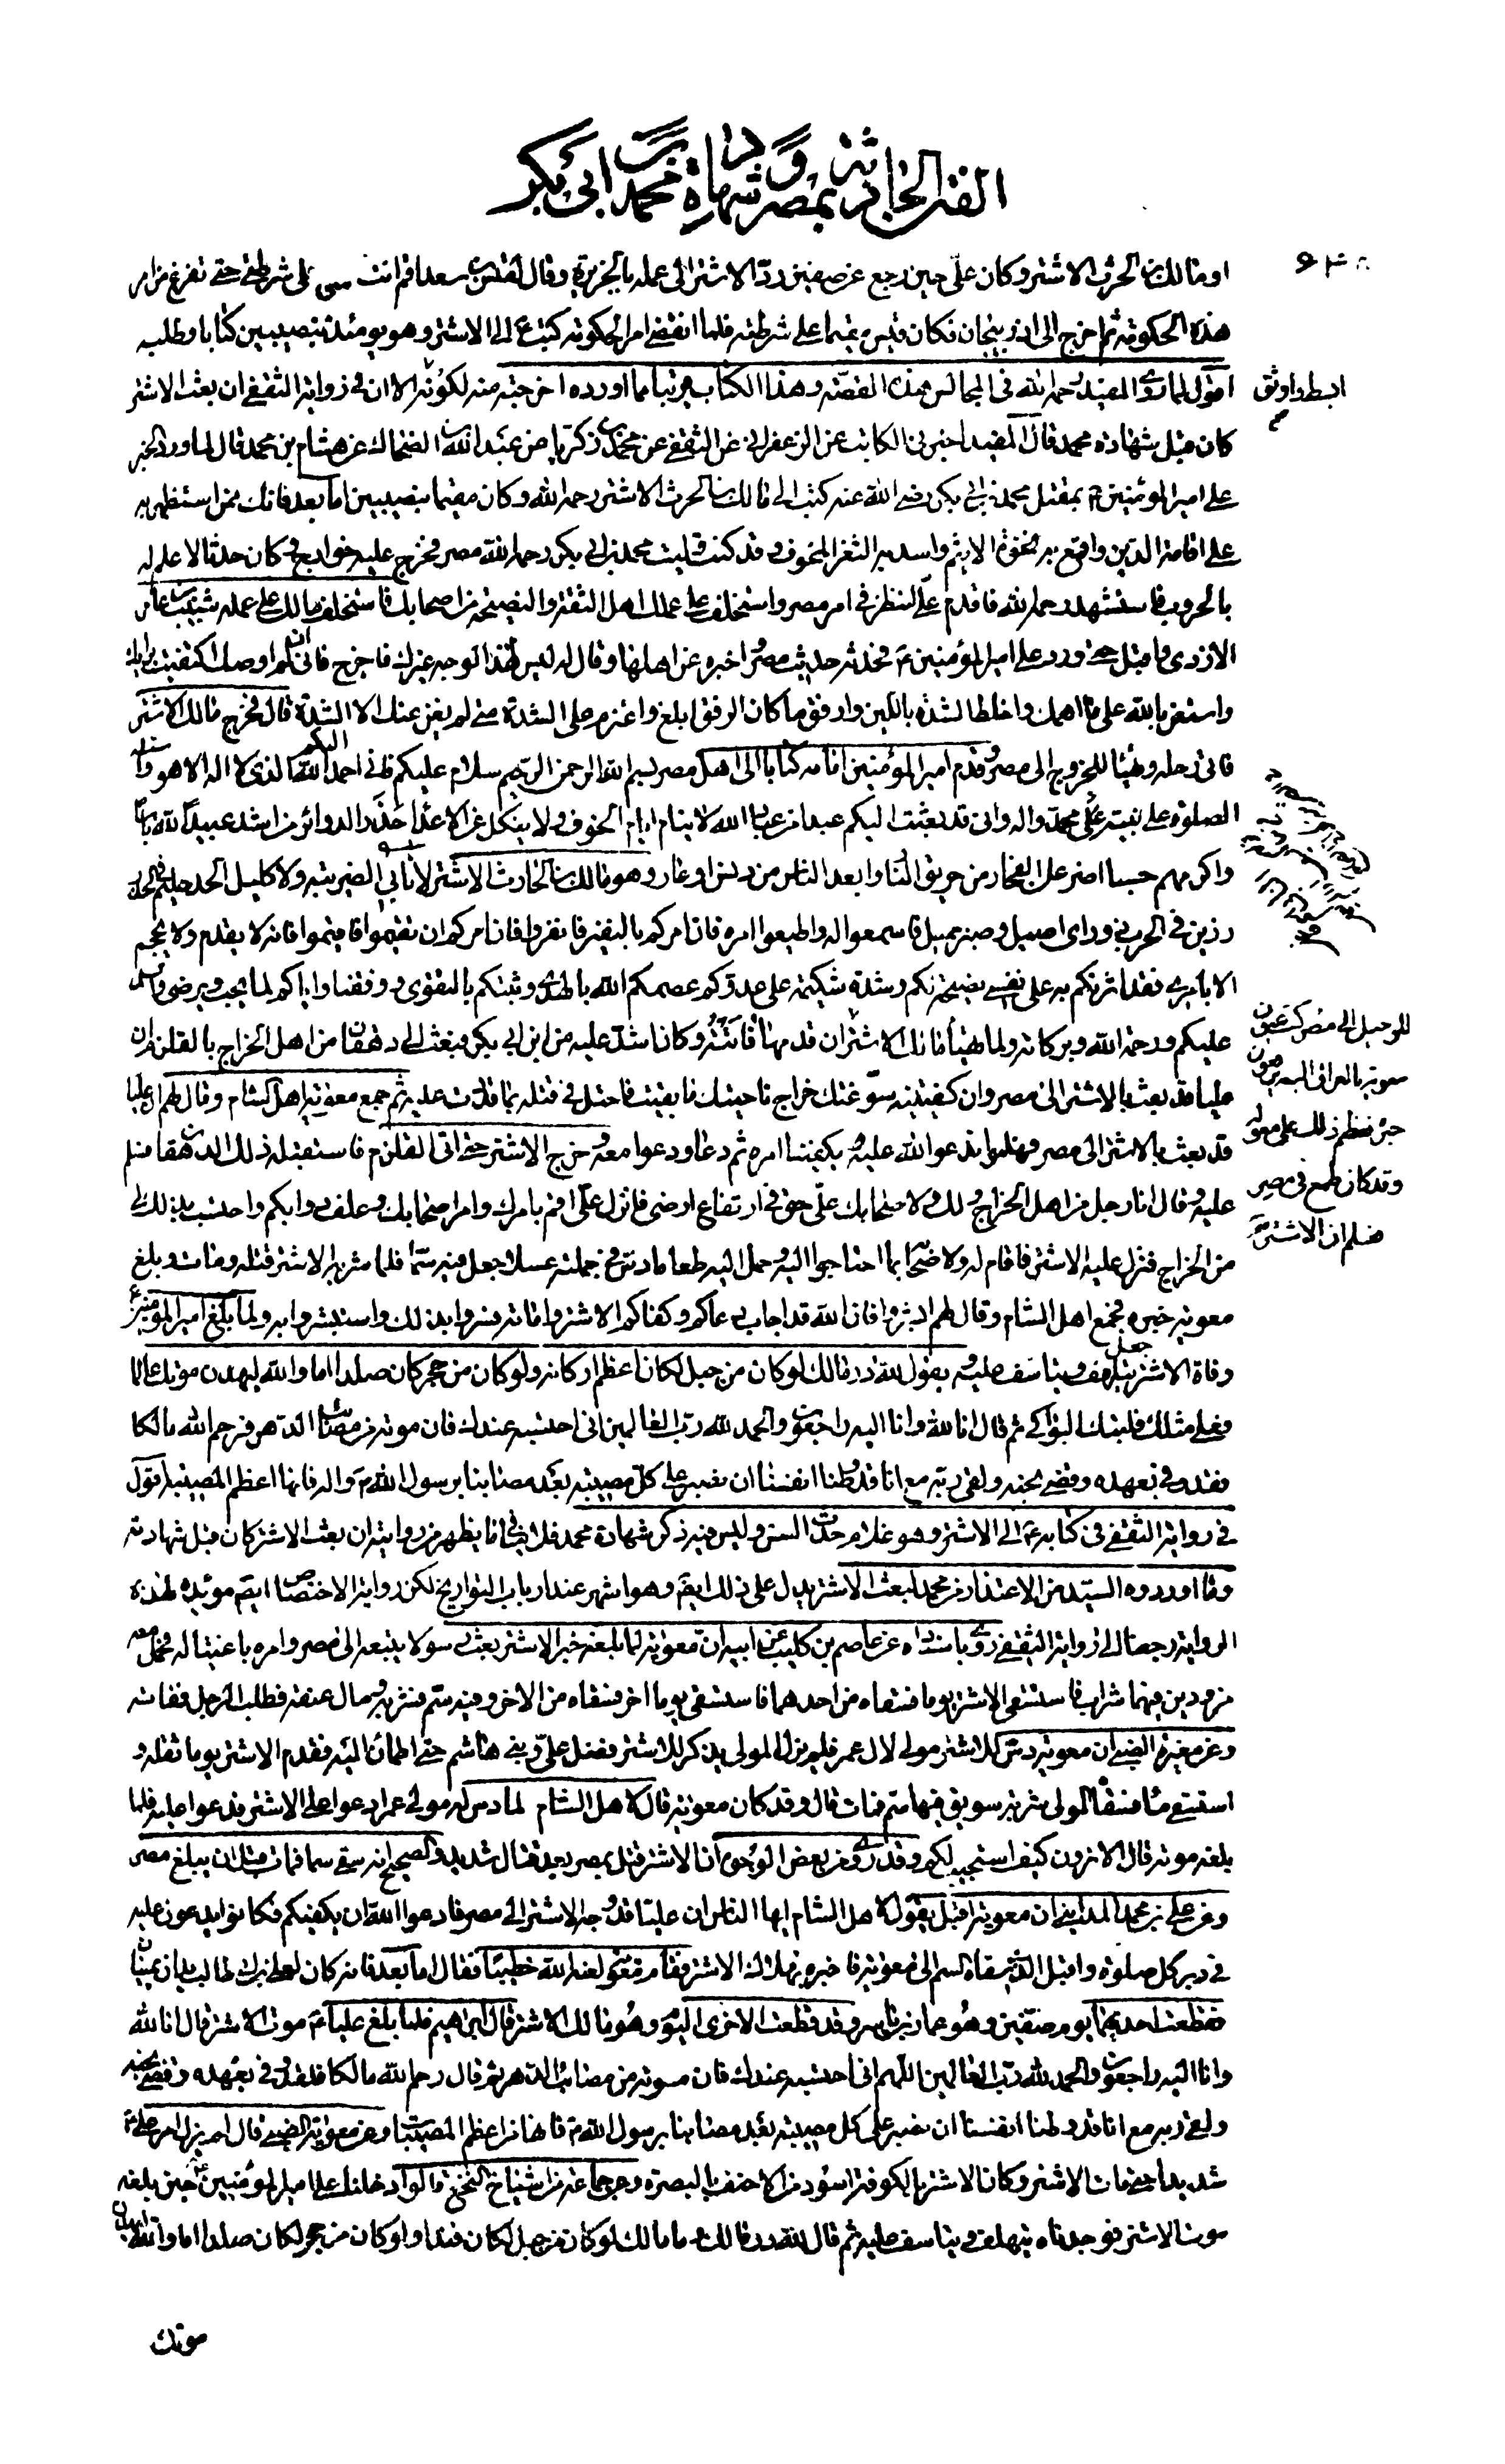 الفتن الحادثة بمصر و شهادة محمد بن ابى بكر
٦٤٨
او مالك بن الحرث الاشتر وكان علىّ حين رجع عن صفين ردّ الاشتر الى عمله بالجزيرة وقال لقيس بن سعد اقم انت معى على شرطتى حتى نفرغ من امر
هذه الحكومة ثم اخرج الى اذربيجان فكان قيس مقيما على شرطته فلما انقضى امر الحكومة كتب ع الى الاشتر وهو يومئذ بنصيبين كتابا وطلبه
اقول لما روى المفيد رحمه الله فى المجالس هذه القصّة وهذا الكتاب قريبا مما اورده اخرجته منه لكونه الا ان فى رواية الثقفى ان بعث الاشتر
ابسط واوثق
م
كان قبل شهادة محمد قال المفيد اخبرنى الكاتب عن الزعفرانى عن الثقفى عن محمد بن زكريا عن عبد الله بن الضحاك عن هشام بن محمد قال لما ورد الخبر
على امير المؤمنين ع بمقتل محمد بن ابى بكر رضى الله عنه كتب الى مالك بن الحرث الاشتر رحمه الله وكان مقيما بنصيبين اما بعد فانك ممن استظهر به
على اقامة الدين واقمع به نخوة الاثيم واسد به الثغر المخوف وقد كنت وليت محمد بن ابى بكر رحمه الله مصر فخرج عليه خوارج وكان حدثا لا علم له
بالحروب فاستشهد رحمه الله فاقدم علىّ لننظر فى امر مصر واستخلف على عملك اهل الثقة والنصيحة من اصحابك فاستخلف مالك على عمله شبيب بن عامر
الازدى واقبل حتى ورد على امير المؤمنين ع فحدثه حديث مصر واخبره عن اهلها وقال له ليس لهذا الوجه غيرك فاخرج فانى ان لم اوصك اكتفيت برايك
واستعن بالله على ما اهمك واخلط الشدة باللين وارفق ما كان الرفق ابلغ واعتزم على الشدة متى لم يغن عنك الا الشدة قال فخرج مالك الاشتر
فاتى رحله وتهيأ للخروج الى مصر وقدم امير المؤمنين امامه كتابا الى اهل مصر بسم الله الرحمن الرحيم سلام عليكم فانى احمد اليكم الله الذى لا اله الا هو واسئله
الصلوة على نبيه محمد واله وانى قد بعثت اليكم عبدا من عباد الله لا ينام ايام الخوف ولا ينكل عن الاعداء حذر الدوائر من اشد عبيد الله باسا
واكرمهم حسبا اضر على الفجار من حريق النار وابعد الناس من دنس او عار وهو مالك بن الحارث الاشتر لا نابى الضريبة ولا كليل الحد حليم فى الحذر
رزين فى الحرب ذو راى اصيل وصبر جميل فاسمعوا له واطيعوا امره فان امركم بالنفير فانفروا فان امركم ان تقيموا فاقيموا فانه لا يقدم ولا يحجم
الا بامرى فقد اثرتكم به على نفسى نصيحة لكم وشدة شكيمة على عدوكم عصمكم الله بالهدى وثبتكم بالتقوى ووفقنا واياكم لما يحب ويرضى والسلم
عليكم ورحمة الله وبركاته ولما تهيأ مالك الاشتر
للرحيل الى مصر كتب عيون
معوية بالعراق اليه
فعظم ذلك على معوية
وقد كان طمع فى مصر
فعلم ان الاشتر
ان قدمها فاتته وكان اشد عليه من ابن ابى بكر فبعث الى دهقان من اهل الخراج بالقلزم ان
عليا قد بعث بالاشتر الى مصر وان كفيتنيه سوّغتك خراج ناحيتك ما بقيت فاحتل فى قتله بما قدرت عليه ثم جمع معوية اهل الشام وقال لهم ان عليا
قد بعث بالاشتر الى مصر فهلموا ندعوا الله عليه يكفينا امره ثم دعا ودعوا معه وخرج الاشتر حتى اتى القلزم فاستقبله ذلك الدهقان فسلم
عليه وقال انا رجل من اهل الخراج ولك ولاصحابك علىّ حق فى ارتفاع ارضى فانزل علىّ اقم بامرك وامر اصحابك وعلف دوابكم واحتسب بذلك لى
من الخراج فنزل عليه الاشتر فاقام له ولاصحابه بما احتاجوا اليه وحمل اليه طعاما دس فى جملته عسلا جعل فيه سمّا فلما شربه الاشتر قتله ومات وبلغ
معوية خبره فجمع اهل الشام وقال لهم ابشروا فان الله قد اجاب دعاءكم وكفاكم الاشتر واماته فسروا بذلك واستبشروا به ولما بلغ امير المؤمنين ع
وفاة الاشتر جعل يتلهف ويتاسف عليه ويقول لله در مالك لو كان من جبل لكان اعظم اركانه ولو كان من حجر كان صلدا اما والله ليهدن موتك عالما
وعلى مثلك فلتبك البواكى ثم قال انا لله وانا اليه راجعون والحمد لله رب العالمين انى احتسبه عندك فان موته من مصائب الدهر فرحم الله مالكا
فقد وفى بعهده وقضى نحبه ولقى ربه مع انا قد وطنا انفسنا ان نصبر على كل مصيبة بعد مصابنا برسول الله ص واله فانها اعظم المصيبة اقول
فى رواية الثقفى فى كتابه ع الى الاشتر وهو غلام حدث السن وليس فيه ذكر شهادة محمد فلا ينافى ما يظهر من روايته ان بعث الاشتر كان قبل شهادته
وما اورده السيد من الاعتذار من محمد لبعث الاشتر يدل على ذلك ايضا وهو اشهر عند ارباب التواريخ لكن رواية الاختصاص ايضا مؤيدة لهذه
الرواية رجعنا الى رواية الثقفى روى باسناده عن عاصم بن كليب عن ابيه ان معوية لما بلغه خبر الاشتر بعث رسولا يتبعه الى مصر وامره باغتياله فحمل معه
مزودين فيهما شراب فاستسقى الاشتر يوما فسقاه من احدهما فاستسقى يوما اخر فسقاه من الاخر وفيه سم فشربه ومال عنقه فطلب الرجل ففاته
وعن مغيرة الضبى ان معوية دس للاشتر مولى لال عمر فلم يزل المولى يذكر للاشتر فضل علىّ وبنى هاشم حتى اطمأن اليه فقدم الاشتر يوما ثقله و
استسقى ماء فسقاه المولى شربة سويق فيها سم فمات قال وقد كان معوية قال لاهل الشام لما دس له مولى عمر ادعوا على الاشتر فدعوا عليه فلما
بلغه موته قال الا ترون كيف استجيب لكم وقد روى من بعض الوجوه ان الاشتر قتل بمصر بعد قتال شديد والصحيح انه سقى سما فمات قبل ان يبلغ مصر
وعن على بن محمد المداينى ان معوية اقبل يقول لاهل الشام ايها الناس ان عليا قد وجه الاشتر الى مصر فادعوا الله ان يكفيكموه فكانوا يدعون عليه
فى دبر كل صلوة واقبل الذى سقاه السم الى معوية فاخبره بهلاك الاشتر فقام معوية لعنه الله خطيبا فقال اما بعد فانه كان لعلى بن ابى طالب يدان يمينان
فقطعت احديهما يوم صفين وهو عمار بن ياسر وقد قطعت الاخرى اليوم وهو مالك الاشتر قال ابراهيم فلما بلغ عليا ع موت الاشتر قال انا لله
وانا اليه راجعون والحمد لله رب العالمين اللهم انى احتسبه عندك فان موته من مصائب الدهر ثم قال رحم الله مالكا فلقد وفى بعهده وقضى نحبه
ولقى ربه مع انا قد وطنا انفسنا ان نصبر على كل مصيبة بعد مصابنا برسول الله ص فانها من اعظم المصيبات وعن مغيرة الضبى قال لم يزل امر على ع
شديدا حتى مات الاشتر وكان الاشتر بالكوفة اسود من الاحنف بالبصرة وعن جماعة من اشياخ النخع قالوا دخلنا على امير المؤمنين ع حين بلغه
موت الاشتر فوجدناه يتلهف ويتاسف عليه ثم قال لله در مالك وما مالك لو كان من جبل لكان فندا ولو كان من حجر لكان صلدا اما والله ليهدن
موتك